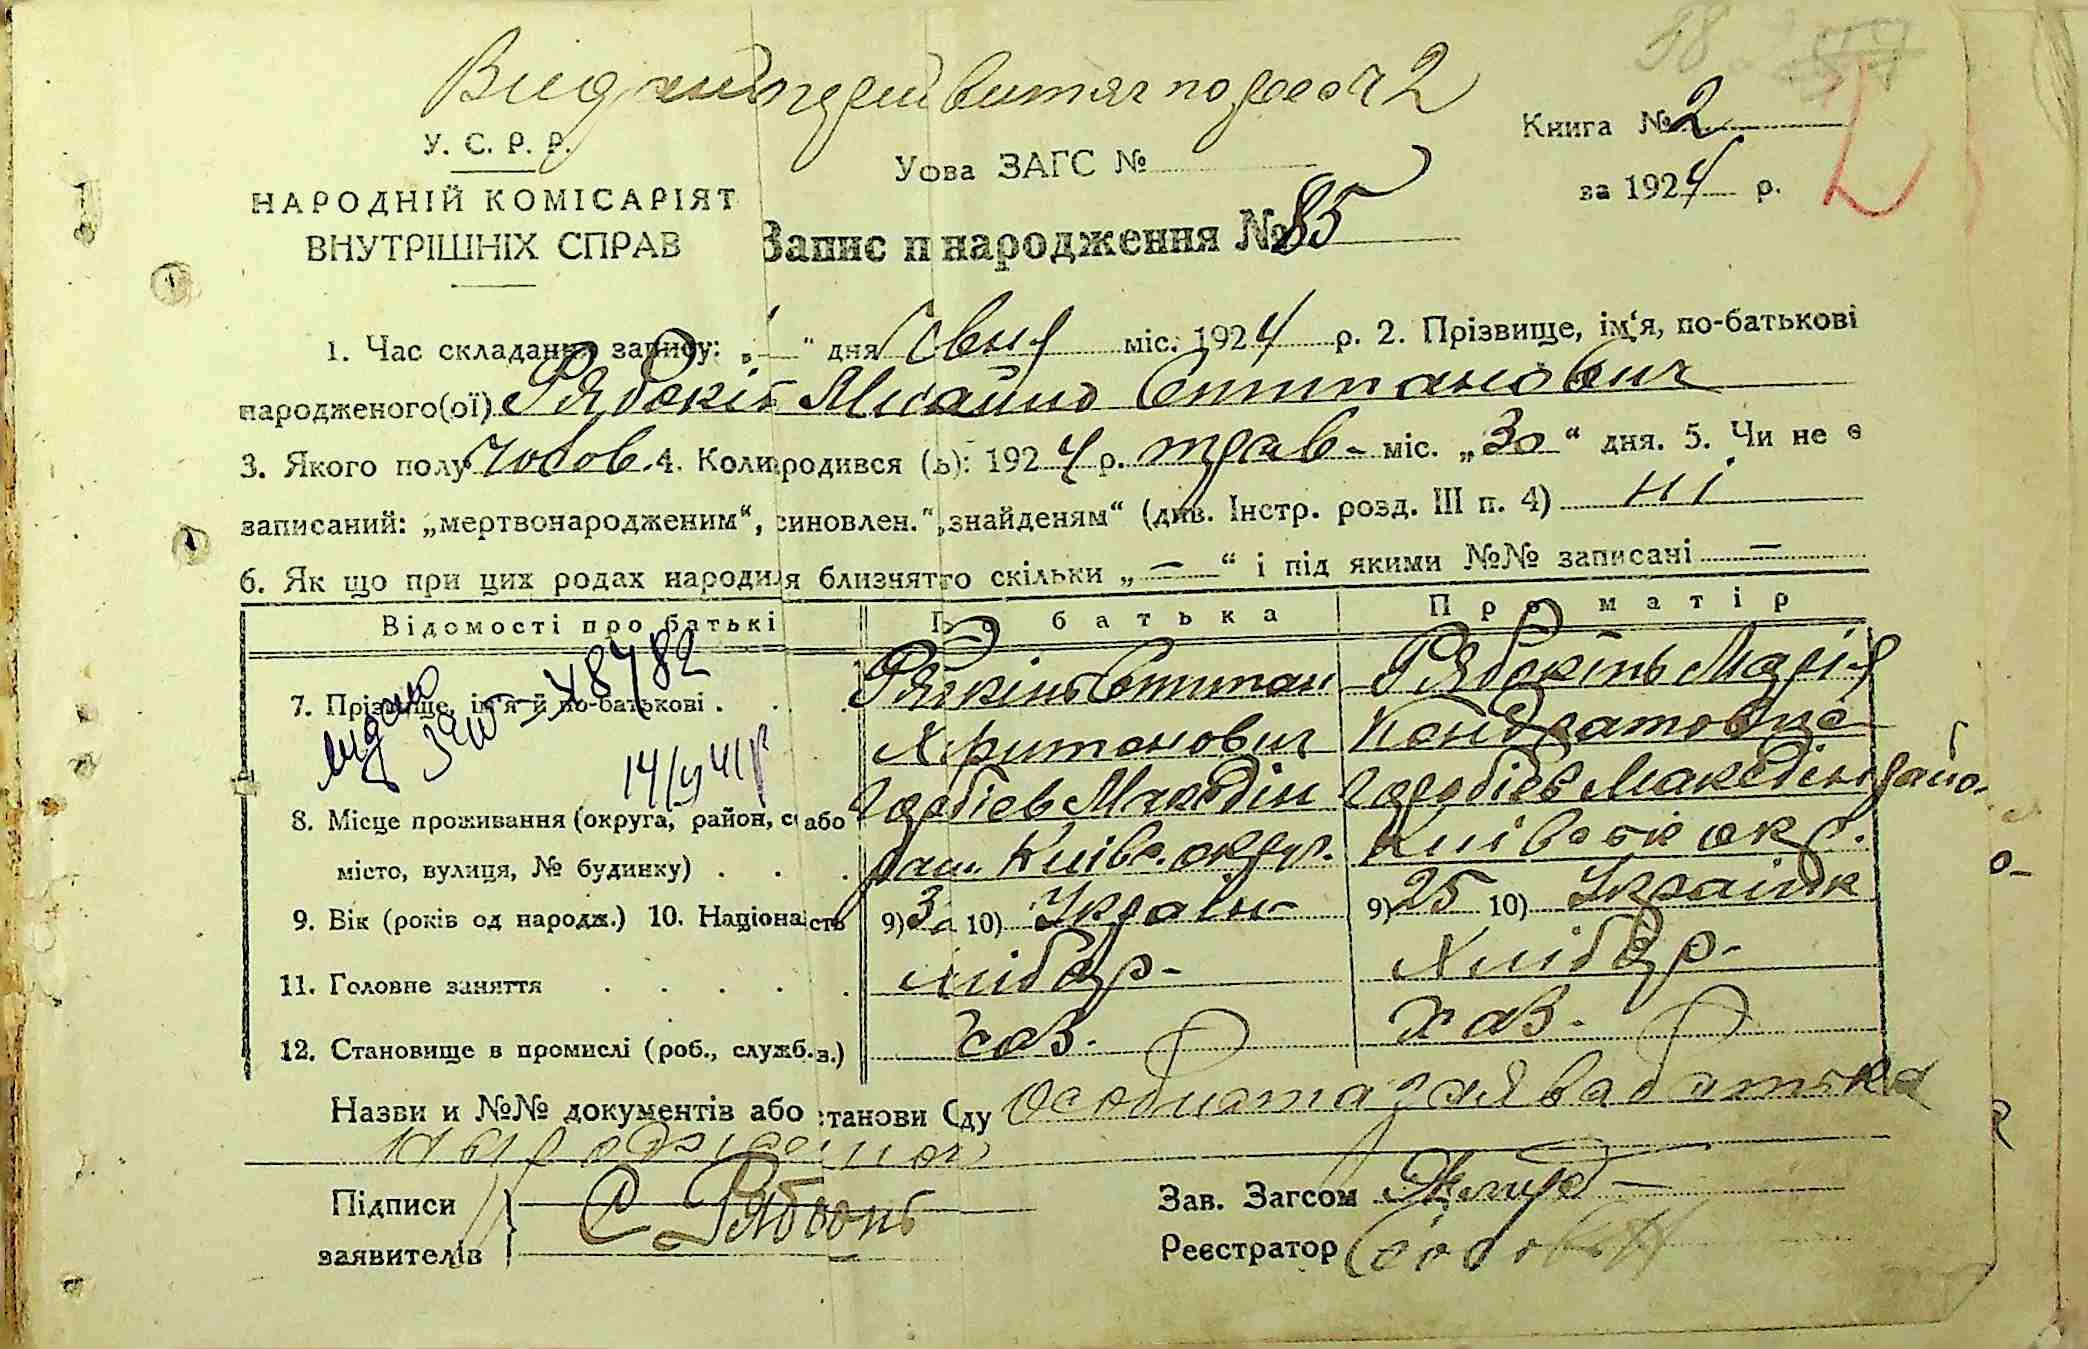 Видиний витяг по форм 2
У. С. Р. Р.
НАРОДНІЙ КОМІСАРІЯТ
ВНУТРІШНІХ СПРАВ
Книга № 2
за 1924 р.
Умова ЗАГС №
Запис п народження № 85
1. Час складання запису: „—" дня Січня міс. 1924 р. 2. Прізвище, ім'я, по-батькові
народженого(ої) Рябокінь Михайло Степанович
3. Якого полу чолов. 4. Коли родився (ь): 1924 р. трав- міс. „30" дня. 5. Чи не є
записаний: „мертвонародженим", синовлен." „знайденям" (див. Інстр. розд. III п. 4) ні
6. Як що при цих родах народи я близнят то скільки „—" і під якими №№ записані —
Відомості про батькі батька Про матір
7. Прізвище, ім'я й по-батькові . . . Степан Рябокінь Марія
Харитонович Кондратовна
видано
48482
14/VI 41 р
8. Місце проживання (округа, район, с або
місто, вулиця, № будинку) . . . Київс. округ. Київськ окр.
9. Вік (років од народж.) 10. Націона сть 9) 30 10) Україн- 9) 25 10) Українк
11. Головне заняття . . . . . хлібор- Хлібор-
12. Становище в промислі (роб., служб. з.) хаз. хаз.
Назви и №№ документів або станови Суду Особиста заява батька
Підписи
заявителів С Рябокінь
Зав. Загсом
Реєстратор